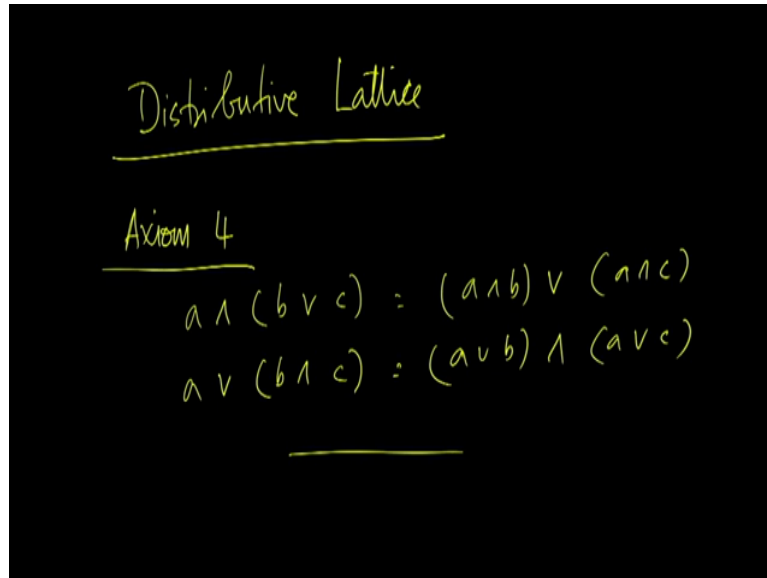 Distributive Lattice
Axiom 4
a ∧ (b ∨ c) = (a ∧ b) ∨ (a ∧ c)
a ∨ (b ∧ c) = (a ∨ b) ∧ (a ∨ c)